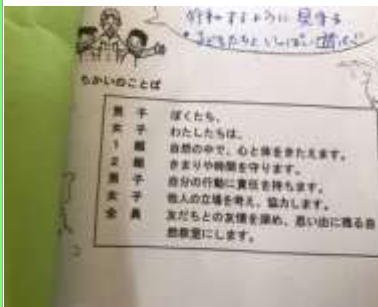 仲和するように見守る
・子どもたちといっぱい遊ぶ
ちかいのことば
男 子 ぼくたち、
女 子 わたしたちは、
1 組 自然の中で、心と体をきたえます。
2 組 きまりや時間を守ります。
男 子 自分の行動に責任を持ちます。
女 子 他人の立場を考え、協力します。
全 員 友だちとの友情を深め、思い出に残る自
然教室にします。